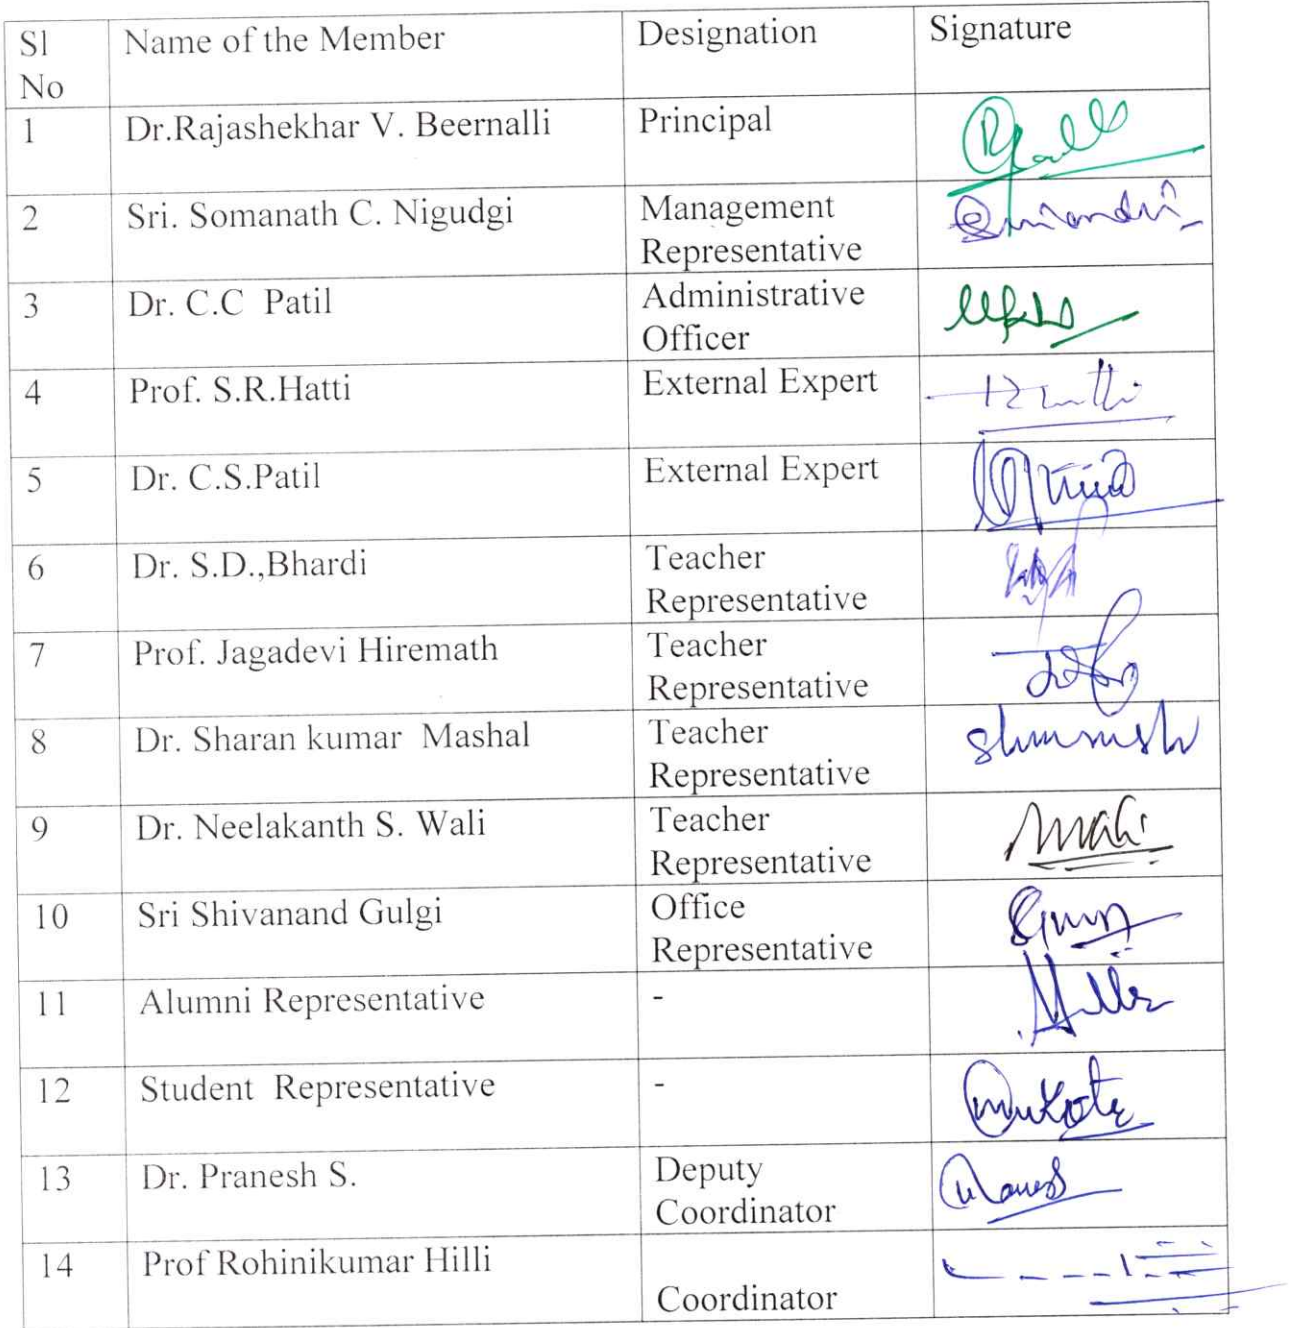 Sl No Name of the Member Designation Signature
1 Dr.Rajashekhar V. Beernalli Principal
2 Sri. Somanath C. Nigudgi Management Representative
3 Dr. C.C Patil Administrative Officer
4 Prof. S.R.Hatti External Expert
5 Dr. C.S.Patil External Expert
6 Dr. S.D.,Bhardi Teacher Representative
7 Prof. Jagadevi Hiremath Teacher Representative
8 Dr. Sharan kumar Mashal Teacher Representative
9 Dr. Neelakanth S. Wali Teacher Representative
10 Sri Shivanand Gulgi Office Representative
11 Alumni Representative -
12 Student Representative -
13 Dr. Pranesh S. Deputy Coordinator
14 Prof Rohinikumar Hilli Coordinator